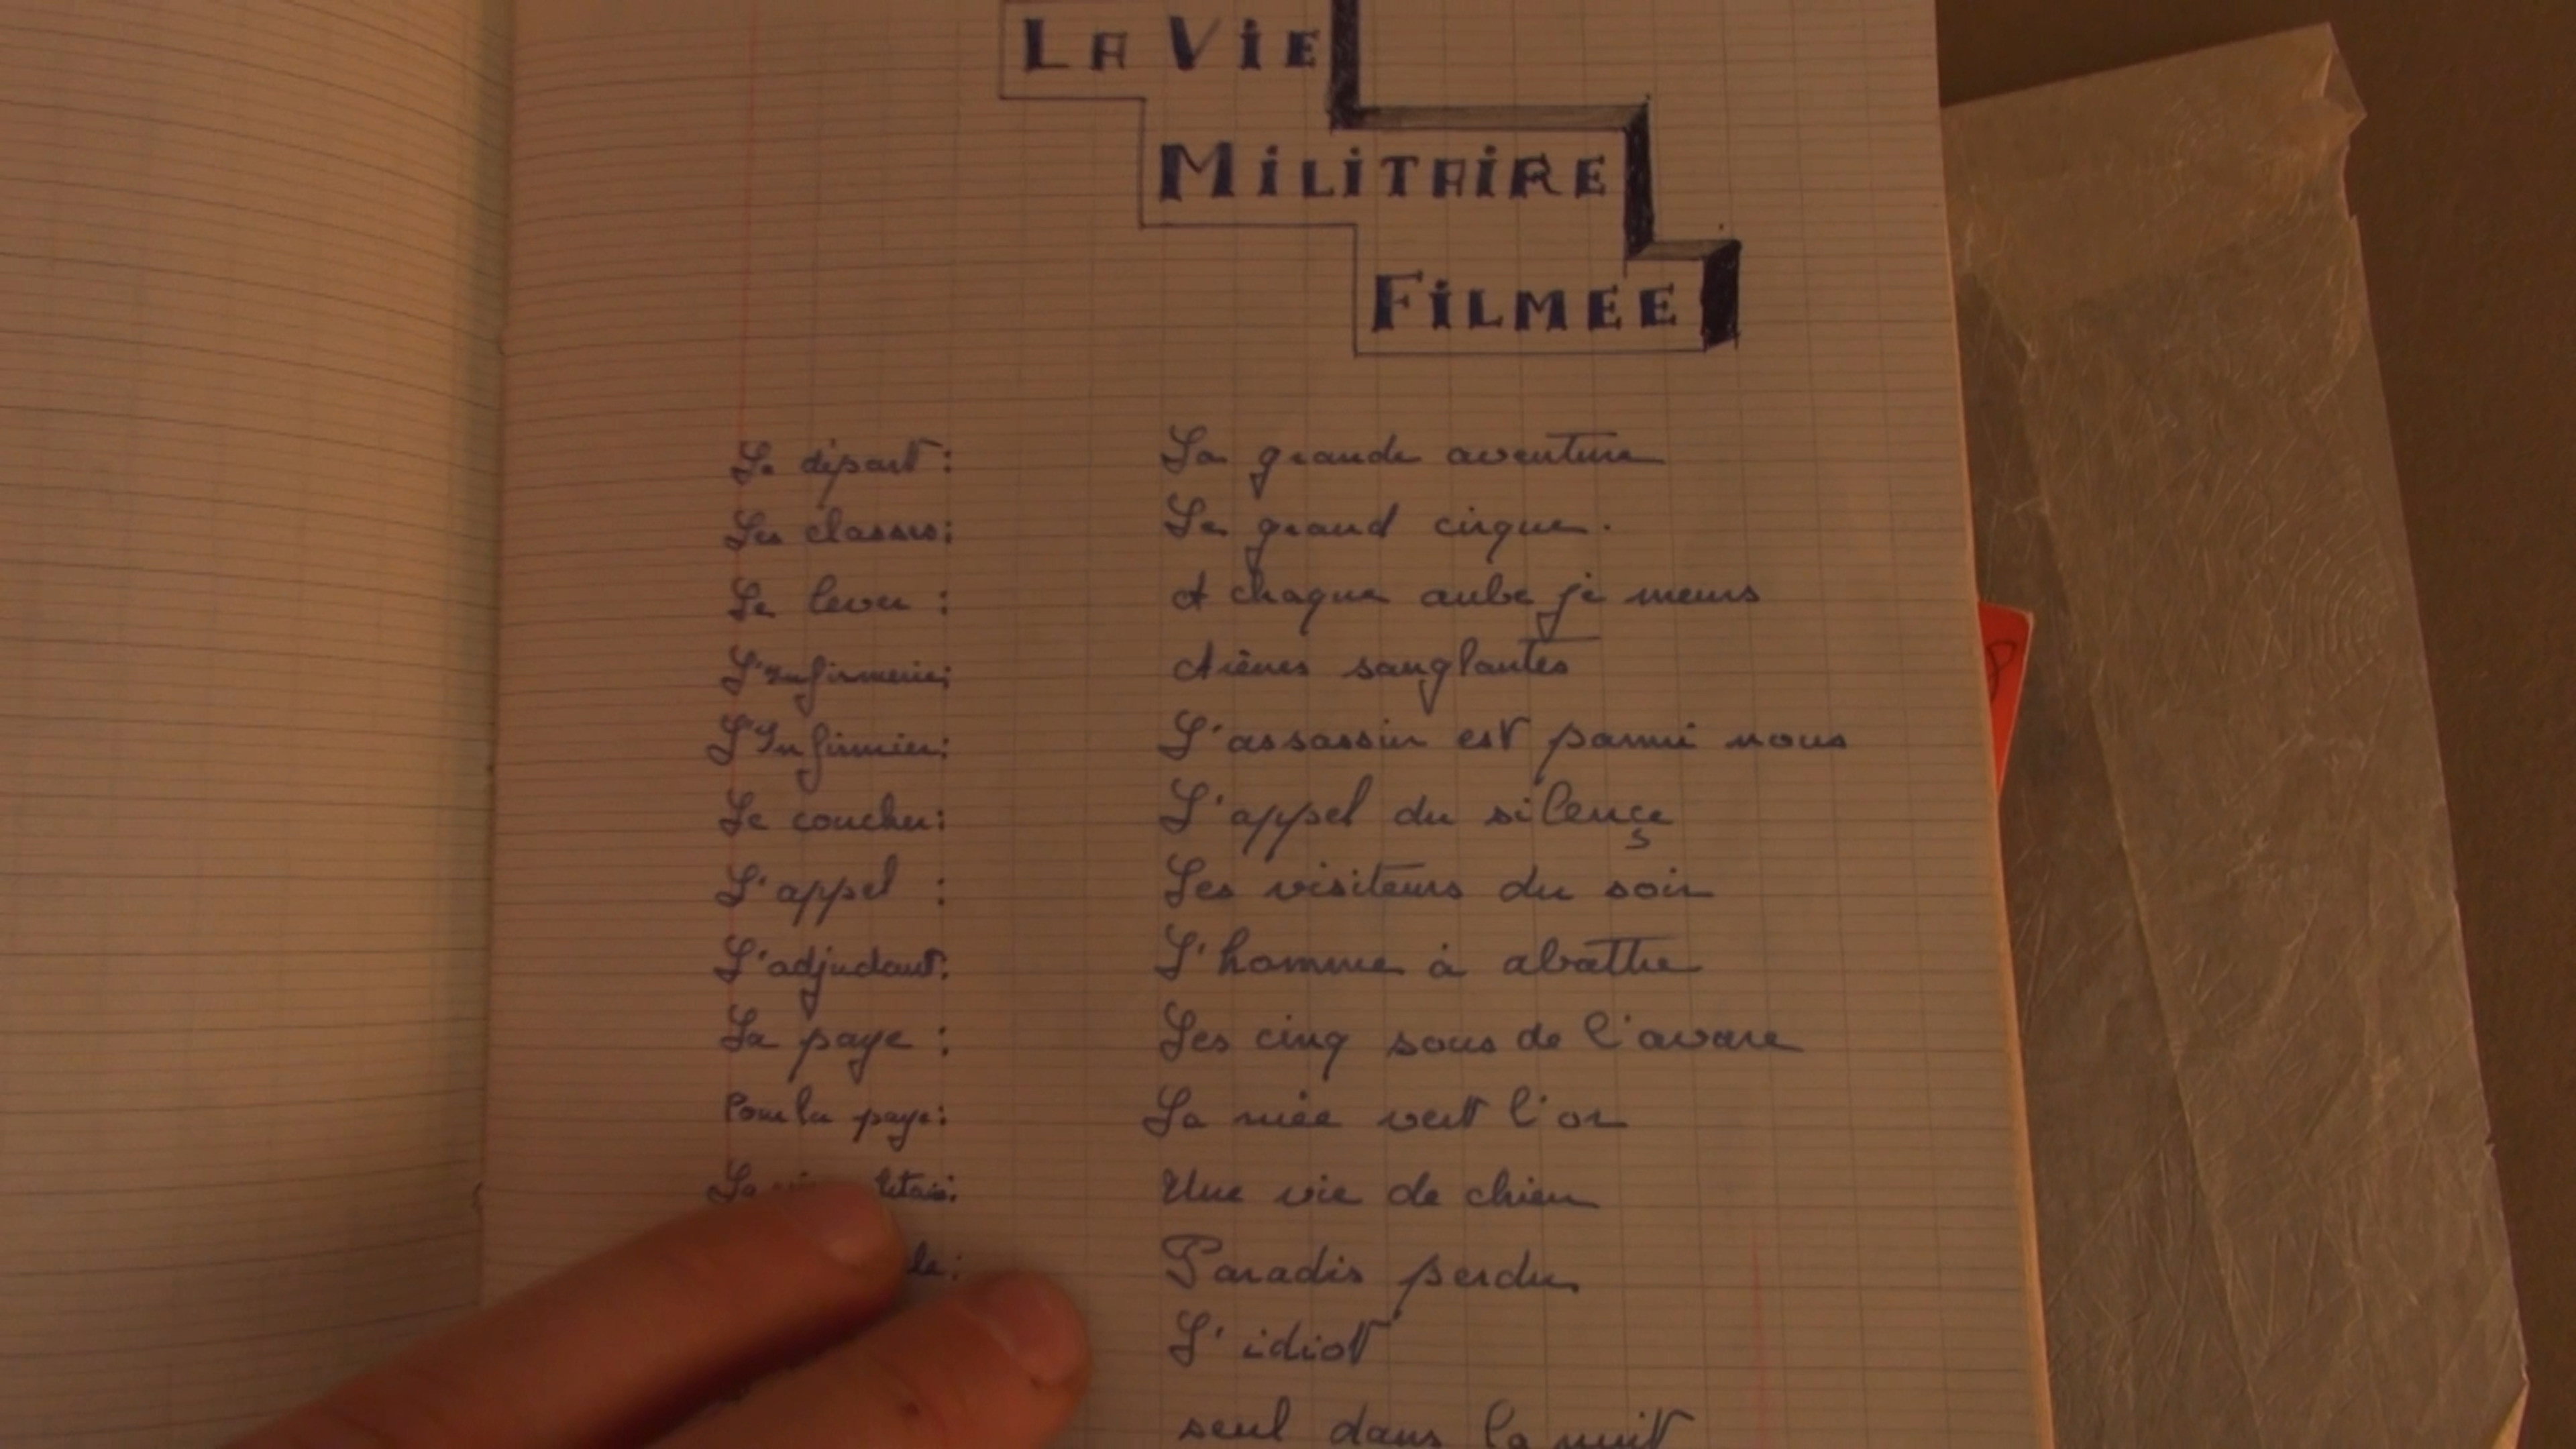 LA VIE
MILITAIRE
FILMEE
Le départ : La grande aventure
Les classes : Le grand cirque.
Le lever : A chaque aube je meurs
L'Infirmerie : Arènes sanglantes
L'Infirmier : L'assassin est parmi nous
Le coucher : L'appel du silence
L'appel : Les visiteurs du soir
L'adjudant : L'homme à abattre
La paye : Les cinq sous de l'avare
Pour la paye : La ruée vers l'or
La Une vie de chien
Paradis perdu
L'idiot
seul dans la nuit
8